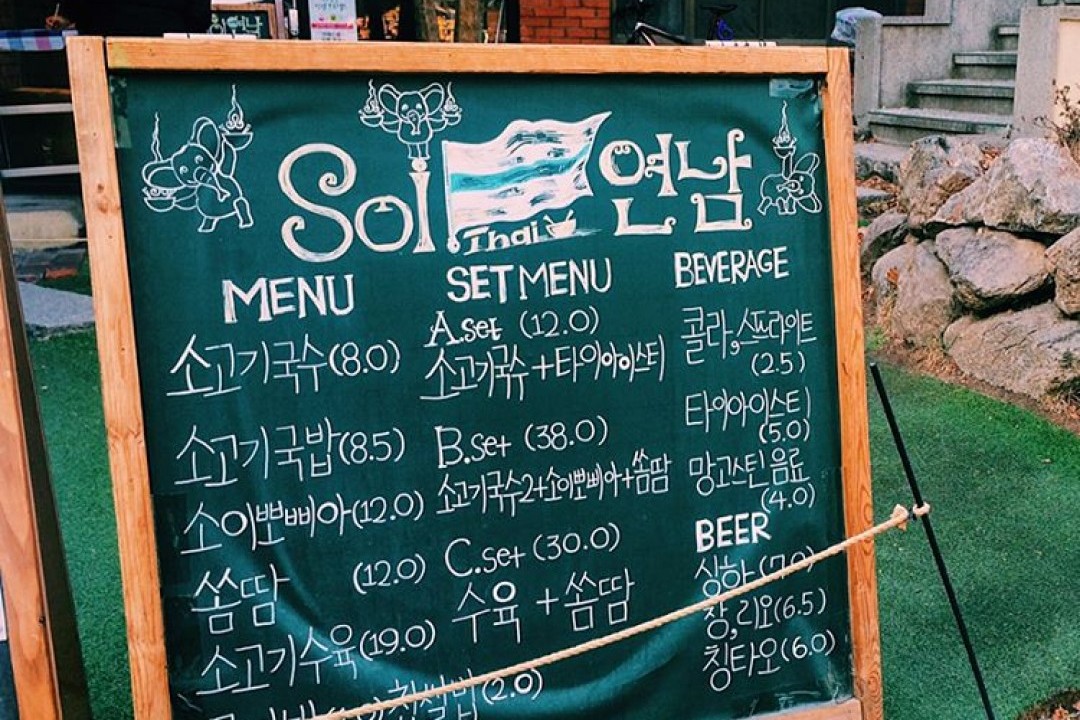 Soi 연남
Thai
MENU
소고기국수(8.0)
소고기국밥(8.5)
소이뽀삐아(12.0)
쏨땀 (12.0)
소고기수육(19.0)
찹쌀밥(2.0)
SET MENU
A.set (12.0)
소고기국수+타이아이스티
B.set (38.0)
소고기국수2+소이뽀삐아+쏨땀
C.set (30.0)
수육+쏨땀
BEVERAGE
콜라,스프라이트
(2.5)
타이아이스티
(5.0)
망고스틴음료
(4.0)
BEER
싱하(7.0)
창,리오(6.5)
칭타오(6.0)